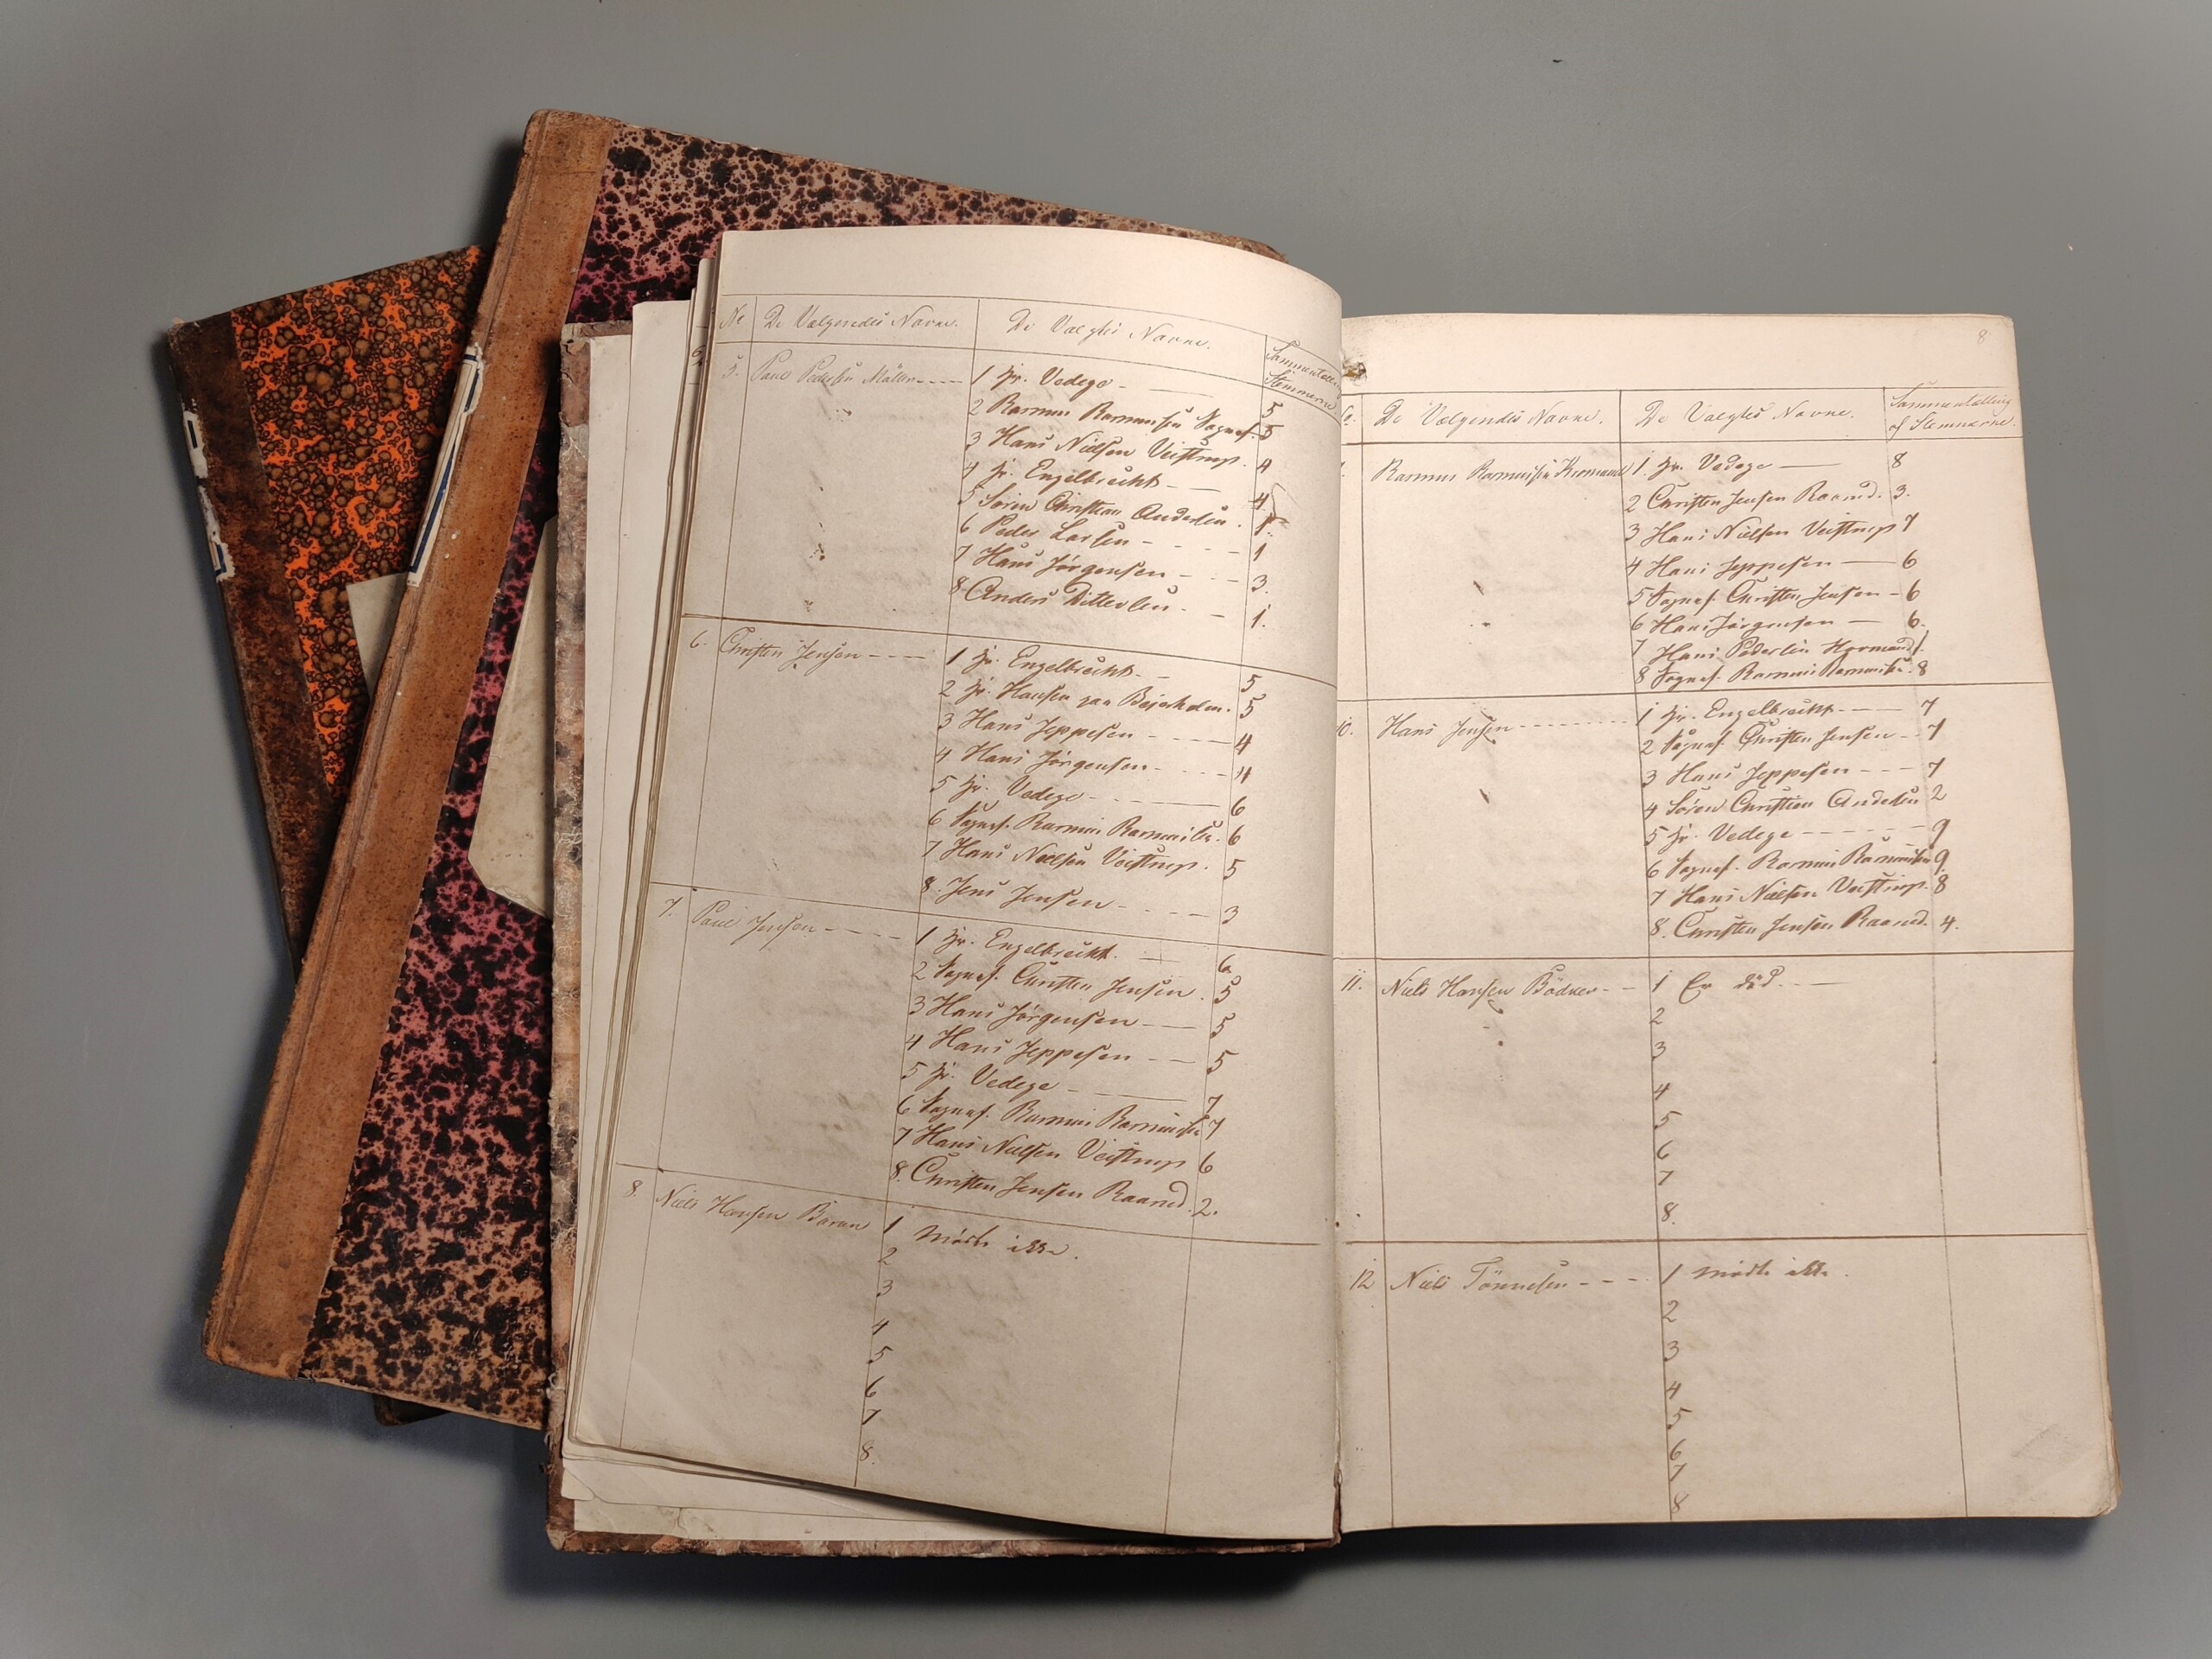 No De Vælgendes Navne. De Valgtes Navne. Sammentælling
Stemmerne
5. Paul Pedersen Møller 1 Hr. Vedege 5
2 Rasmus Rasmussen Sognef. 5
3 Hans Nielsen Veistrup. 4
4 Hr. Engelbrecht 4
5 Søren Christian Andersen. 1.
6 Peder Larsen 1
7 Hans Jørgensen 3.
8 Anders Ditlevsen 1.
6. Christen Jensen 1 Hr. Engelbrecht. 5
2 Hr. Hansen paa Bøjerholm. 5
3 Hans Jeppesen 4
4 Hans Jørgensen 4
5 Hr. Vedege 6
6 Sognef. Rasmus Rasmussen. 6
7 Hans Nielsen Veistrup. 5
8. Jens Jensen 3
7. Paul Jensen 1 Hr. Engelbrecht. 6
2 Sognef. Christen Jensen. 5
3 Hans Jørgensen 5
4 Hans Jeppesen 5
5 Hr. Vedege 7
6 Sognef. Rasmus Rasmussen 7
7 Hans Nielsen Veistrup 6
8. Christen Jensen Raamd. 2.
8. Niels Hansen 1 mødte ikke.
2
3
4
5
6
7
8.
8
No. De Vælgendes Navne. De Valgtes Navne. Sammentælling
af Stemmerne.
Rasmus Rasmussen 1. Hr. Vedege 8
2 Christen Jensen Raamd. 3.
3 Hans Nielsen Veistrup 7
4 Hans Jeppesen 6
5 Sognef. Christen Jensen 6
6 Hans Jørgensen 6.
7 Hans Pedersen 1.
8 Sognef. Rasmus Rasmussen. 8
10. Hans Jensen 1 Hr. Engelbrecht 7
2 Sognef. Christen Jensen 7
3 Hans Jeppesen 7
4 Søren Christian Andersen 2
5 Hr. Vedege 9
6 Sognef. Rasmus Rasmussen 9.
7 Hans Nielsen Veistrup. 8
8. Christen Jensen Raamd. 4.
11. Niels Hansen Bödker 1 Er død.
2
3
4
5
6
7
8.
12 Niels Tönnesen 1 mødte ikke.
2
3
4
5
6
7
8